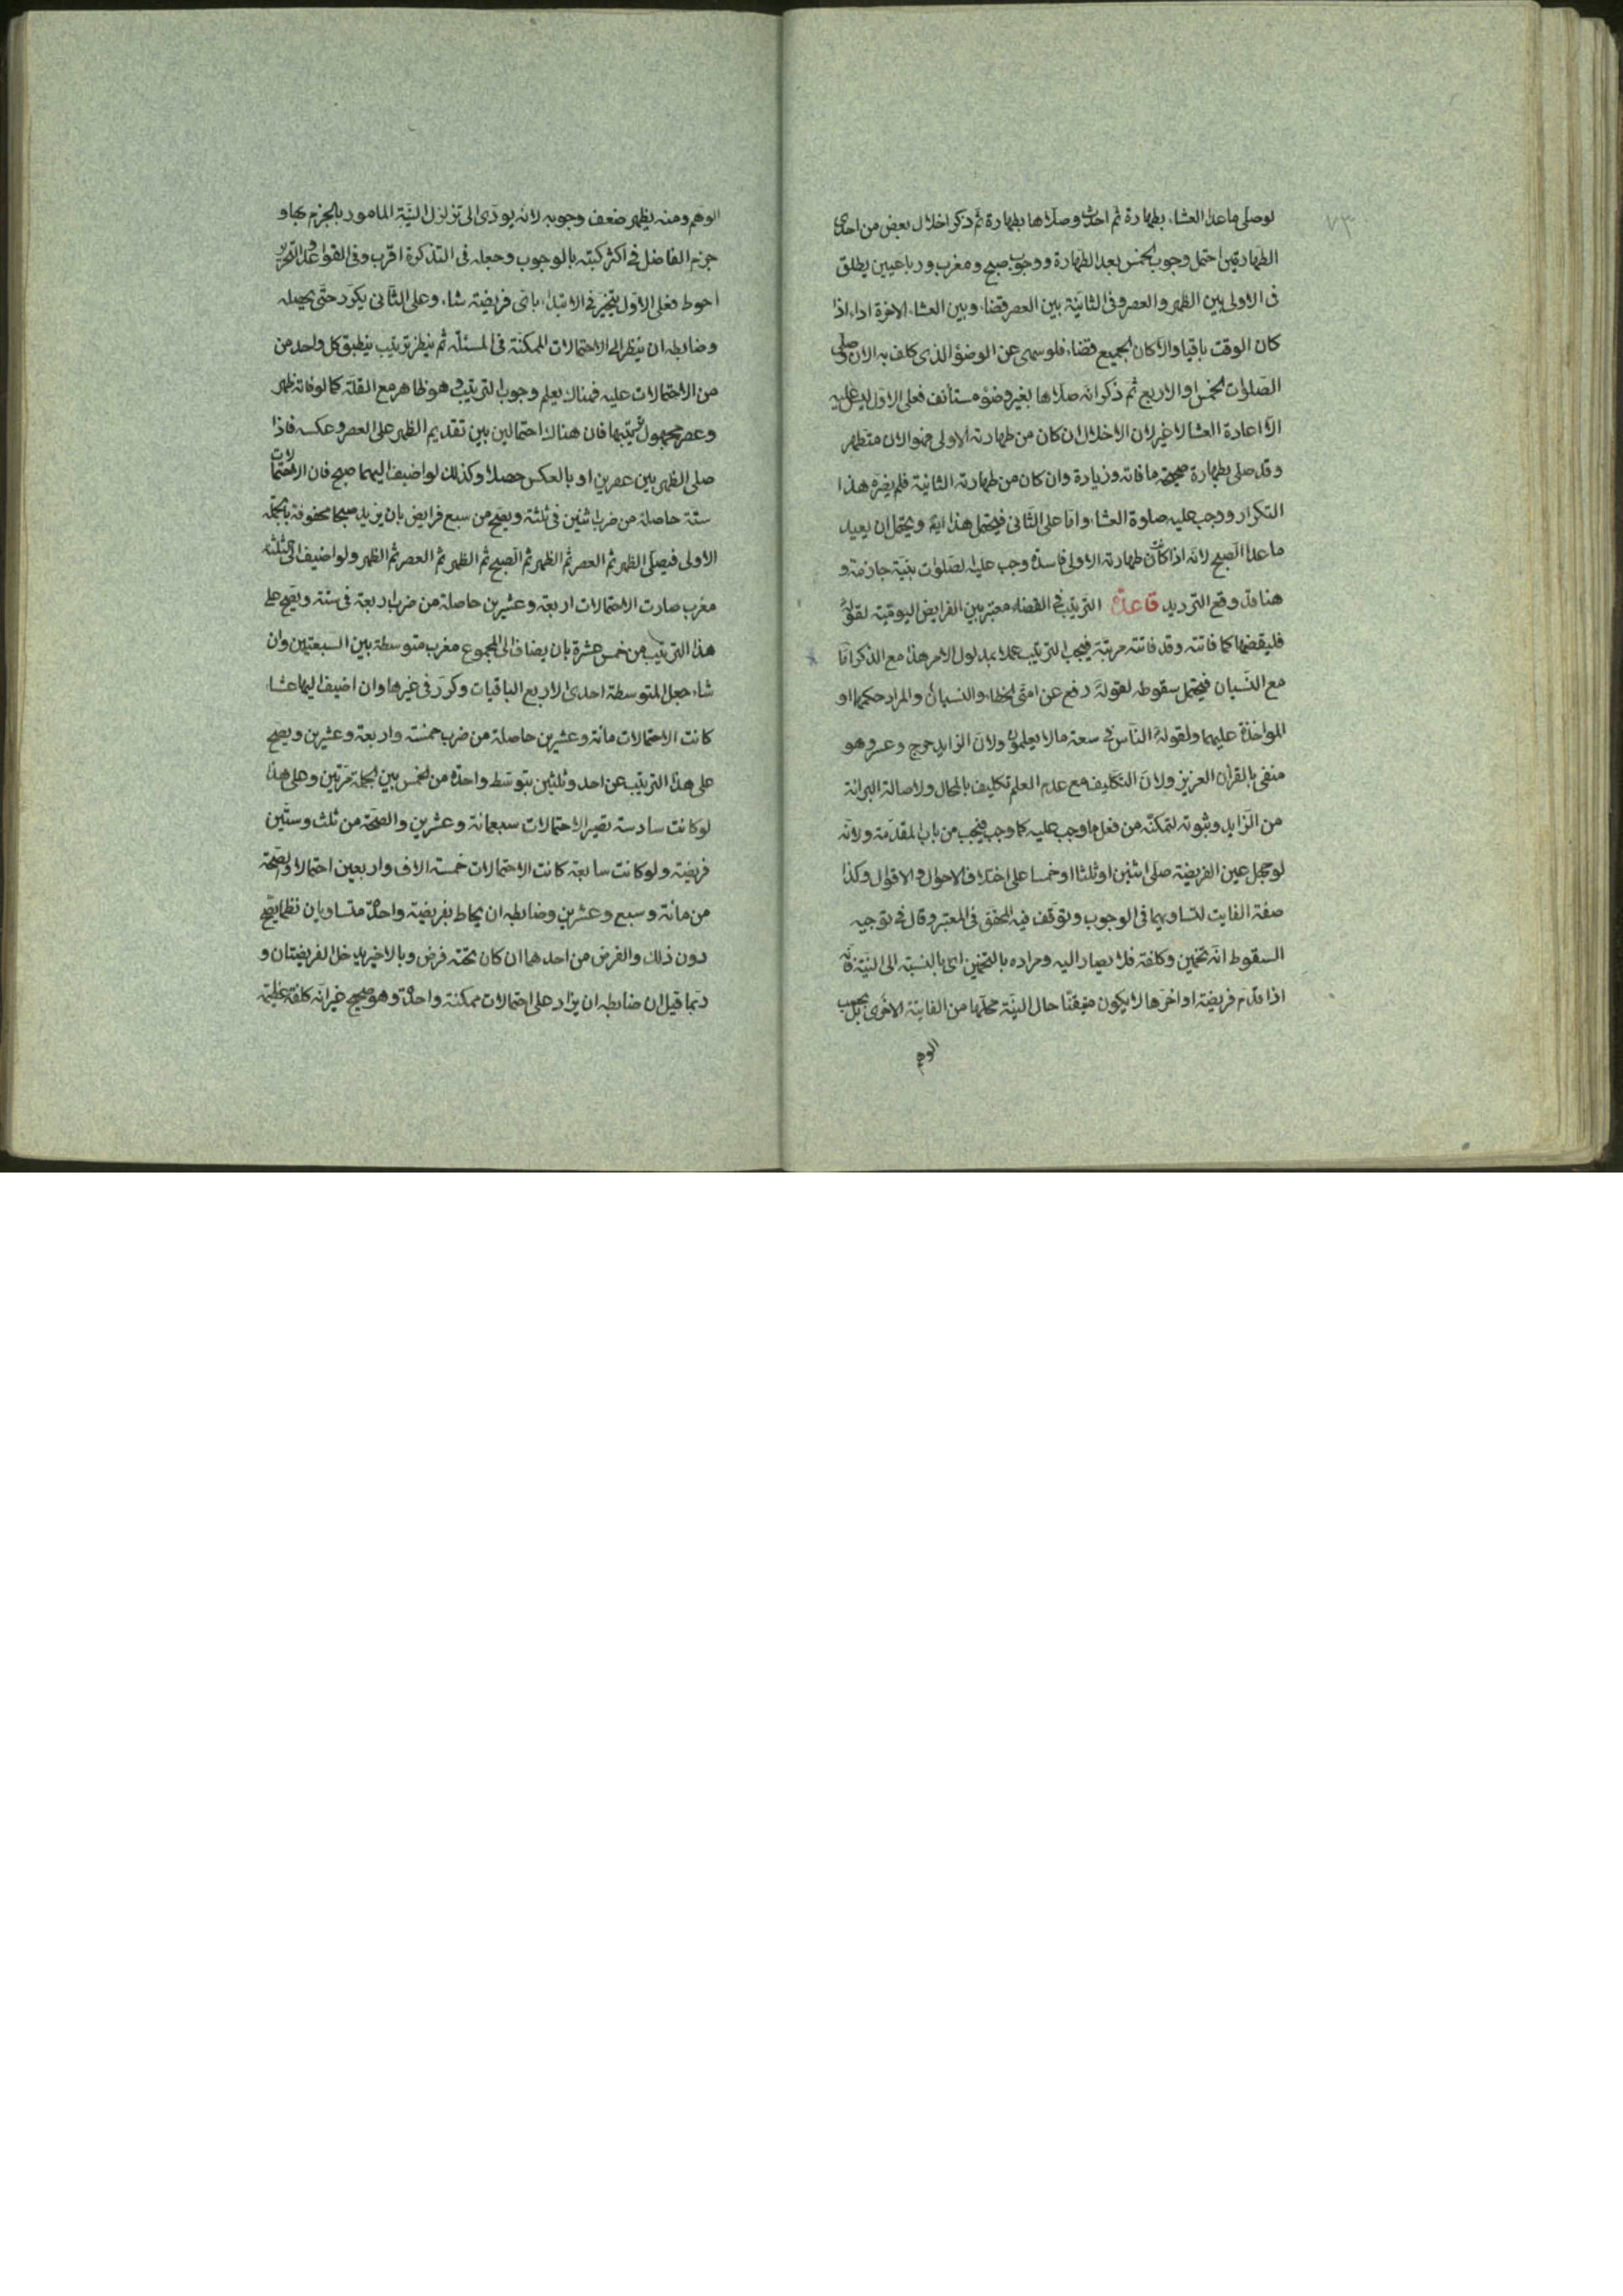 ٧٣
لو صلى ما عدا العشاء بطهارة ثم احدث وصلاها بطهارة ثم ذكر اخلال بعض من احدى
الطهارتين احتمل وجوب الخمس بعد الطهارة ووجوب صبح ومغرب ورباعيين يطلق
فى الاولى بين الظهر والعصر وفى الثانية بين العصر قضاء وبين العشاء الاخرة اداء اذا
كان الوقت باقيا والا كان الجميع قضاء فلو سهى عن الوضؤ الذى كلف به الان وصلى
الصلوات الخمس او الاربع ثم ذكر انه صلاها بغير وضؤ مستأنف فعلى الاول ليس عليه
الا اعادة العشا لا غير لان الاخلال ان كان من طهارته الاولى فهو الان متطهر
وقد صلى بطهارة صحيحة ما فاته وزيادة وان كان من طهارته الثانية فلم يضره هذا
التكرار ووجب عليه صلوة العشاء واما على الثانى فيحتمل هذا ايضا ويحتمل ان يعيد
ما عدا الصبح لانه اذا كانت طهارته الاولى فاسدة وجب عليه الصلوات بنية جازمة و
هنا قد وقع الترديد قاعدة الترتيب فى القضاء معتبر بين الفرايض اليومية لقوله
فليقضها كما فاتته وقد فاتته مرتبة فيجب الترتيب عملا بمدلول الامر هذا مع الذكر اما
مع النسيان فيحتمل سقوطه لقوله رفع عن امتى الخطاء والنسيان والمراد حكمهما او
المواخذة عليهما ولقوله الناس فى سعة ما لا يعلمون ولان الزايد حرج وعسر وهو
منفى بالقران العزيز ولان التكليف مع عدم العلم تكليف بالمحال ولاصالة البرائة
من الزايد وثبوته لتمكنه من فعل ما وجب عليه كما وجب فيجب من باب المقدمة ولانه
لو جهل عين الفريضة صلى اثنين او ثلثا او خمسا على اختلاف الاحوال والاقوال وكذا
صفة الفايت لتساويهما فى الوجوب وتوقف فيه المحقق فى المعتبر وقال فى توجيه
السقوط انه تخمين وكلفة فلا يصار اليه ومراده بالتخمين اى بالنسبة الى النية فانه
اذا قدم فريضة او اخرها لا يكون متيقنا حال النية محلها من الفايتة الاخرى بل بحسب
الوهم
الوهم ومنه يظهر ضعف وجوبه لانه يودى الى تزلزل النية المامور بالجزم بها و
جزم الفاضل فى اكثر كتبه بالوجوب وجعله فى التذكرة اقرب وفى القواعد والتحرير
احوط فعلى الاول يتخير فى الابتداء باى فريضة شاء وعلى الثانى يكرر حتى يحصله
وضابطه ان ينظر الى الاحتمالات الممكنة فى المسئلة ثم ينظر ترتيب ينطبق كل واحد من
من الاحتمالات عليه فهناك يعلم وجوب الترتيب وهو ظاهر مع القلة كما لو فاته ظهر
وعصر مجهول ترتيبها فان هناك احتمالين بين تقديم الظهر على العصر وعكسه فاذا
صلى الظهر بين عصرين او بالعكس حصلا وكذلك لو اضيف اليهما صبح فان الاحتمالات
ستة حاصلة من ضرب اثنين فى ثلثة ويصح من سبع فرايض بان يزيد صبحا محفوفة بالجملة
الاولى فيصلى الظهر ثم العصر ثم الظهر ثم الصبح ثم الظهر ثم العصر ثم الظهر ولو اضيف الى الثلثة
مغرب صارت الاحتمالات اربعة وعشرين حاصلة من ضرب اربعة فى ستة ويصح على
هذا الترتيب من خمس عشرة بان يضاف الى المجموع مغرب متوسطة بين السبعتين وان
شاء جعل المتوسطة احدى الاربع الباقيات وكرر فى غيرها وان اضيف اليها عشاء
كانت الاحتمالات مائة وعشرين حاصلة من ضرب خمسة واربعة وعشرين ويصح
على هذا الترتيب عن احد وثلثين بتوسط واحدة من الخمس بين الجملة مرتين وعلى هذا
لو كانت سادسة تصير الاحتمالات سبعمائة وعشرين والصحة من ثلث وستين
فريضة ولو كانت سابعة كانت الاحتمالات خمسة الاف واربعين احتمالا والصحة
من مائة وسبع وعشرين وضابطه ان يحاط بفريضة واحدة متساويان نظما يصح
دون ذلك والفرض من احدهما ان كان تحته فرض وبالاخير يدخل الفريضتان و
ربما قيل ان ضابطه ان يزاد على احتمالات ممكنة واحدة وهو صحيح غير انه كلفة عظيمة